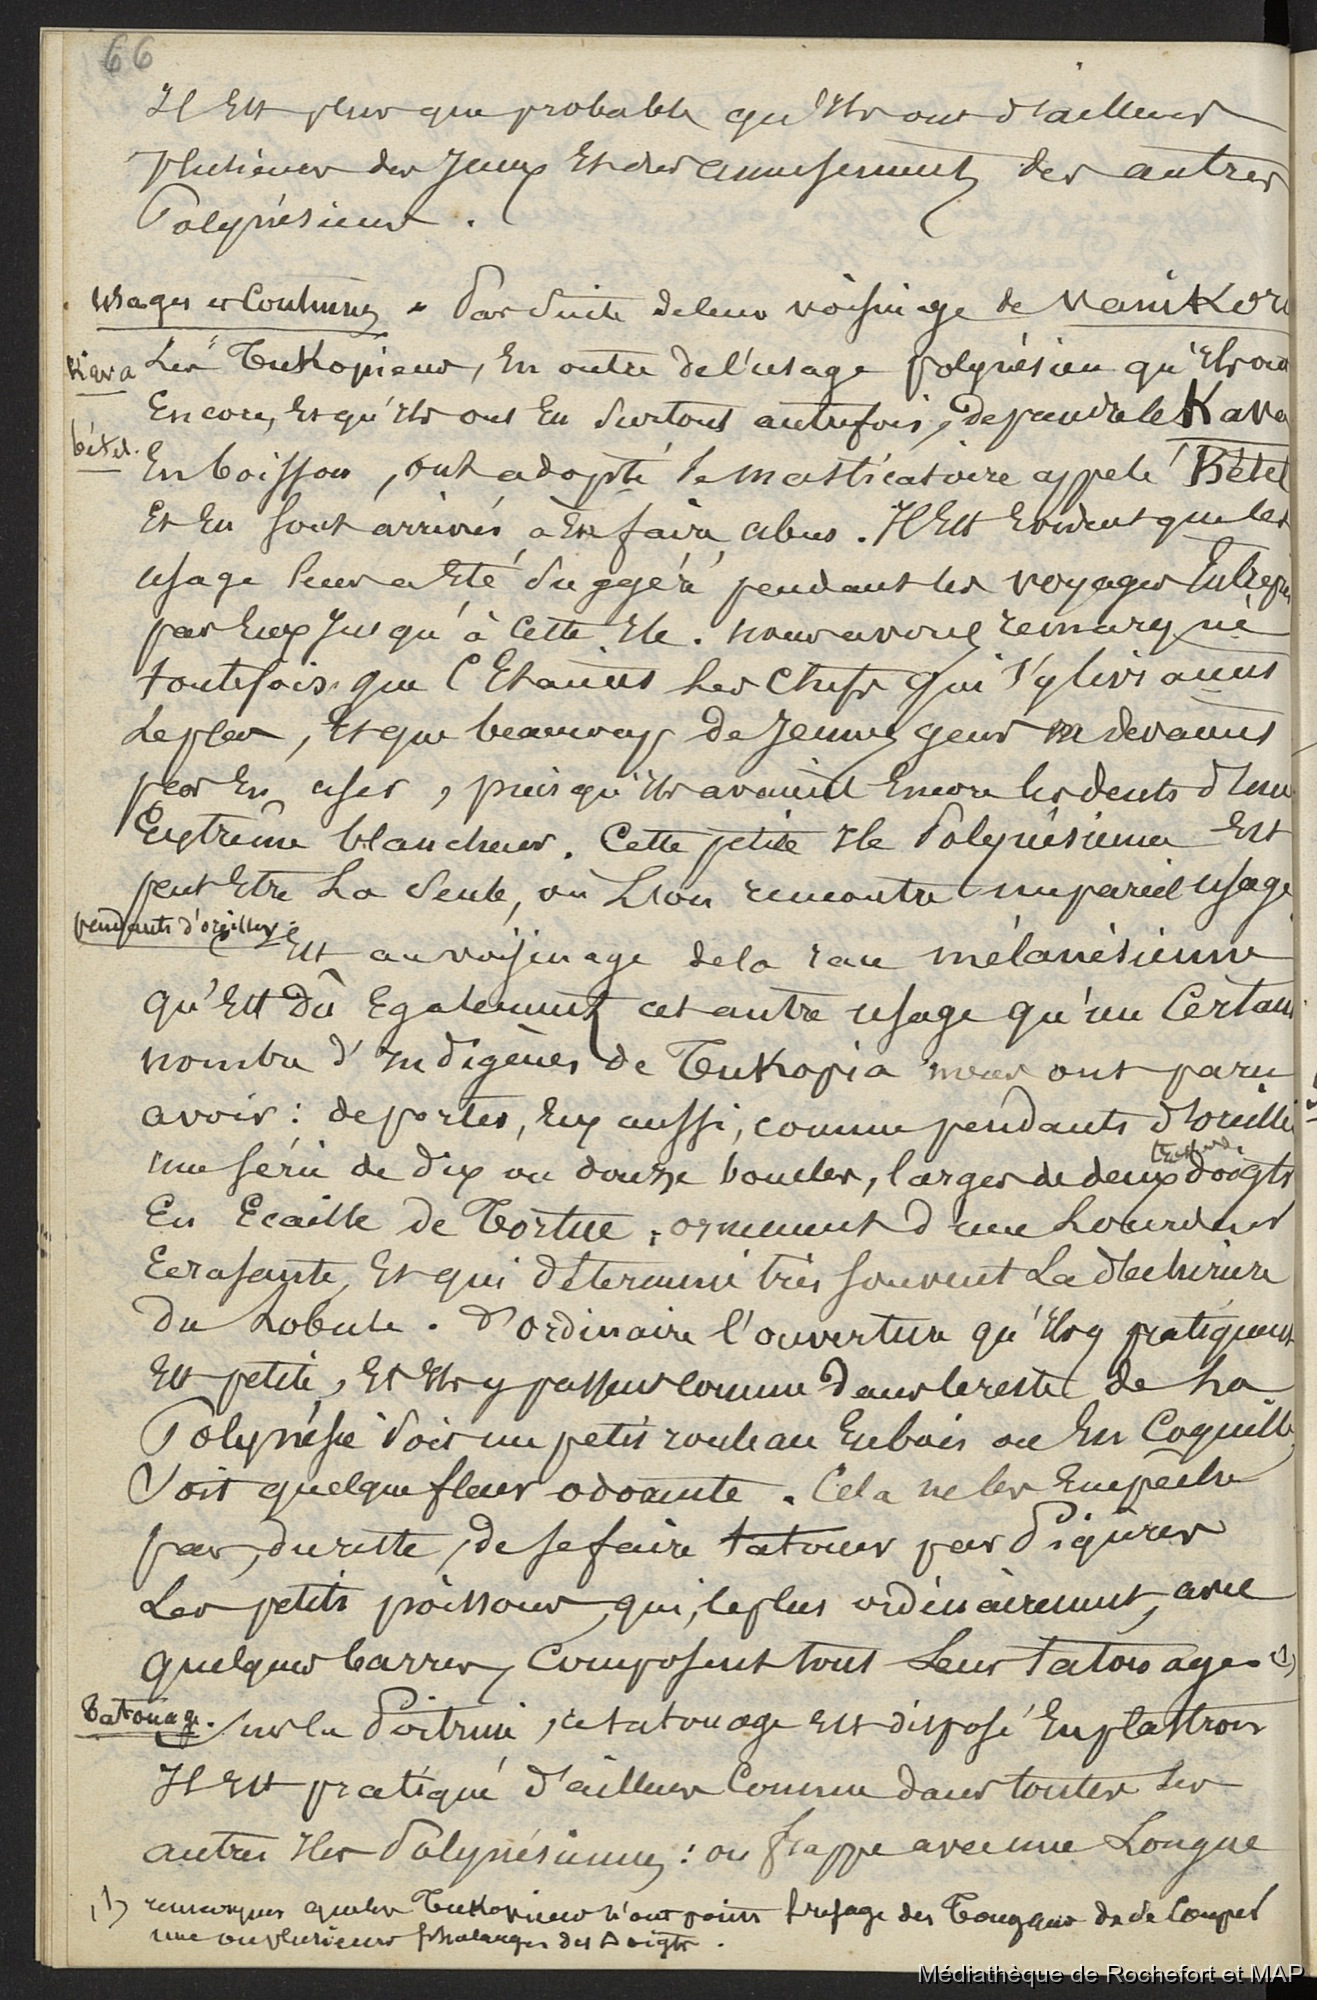 66
Il Est plus que probable qu'Ils ont d'ailleurs
plusieurs des Jeux Et des amusements des autres
Polynésiens.
Usages et Coutumes - Par Suite de leur voisinage de Vanikoro
Kava
Les Tukopiens, En outre de l'usage polynésien qu'Ils ont
Encore, Et qu'Ils ont Eu Surtout autrefois, de prendre le Kava
bétel.
En boisson, ont adopté le masticatoire appelé Bétel
Et En sont arrivés à En faire abus. Il Est Evident que cet
usage leur a Eté Suggéré pendant les voyages Entrepris
par Eux Jusqu'à Cette Ile. nous avons remarqué
toutefois que C'Etaient les Chefs qui s'y livraient
le plus, Et que beaucoup de Jeunes gens ne devaient
pas En user, puisqu'Ils avaient Encore les dents d'une
Extrême blancheur. Cette petite Ile Polynésienne Est
peut Etre la Seule, où L'on rencontre un pareil usage
pendants d'oreilles:
C'Est au voisinage de la race mélanésienne
qu'Est Dû Egalement cet autre usage qu'un Certain
nombre d'Indigènes de Tukopia nous ont paru
avoir: de porter, Eux aussi, comme pendants d'oreille
une série de dix ou douze boucles, larges de deux doigts
En Ecaille de Tortue; ornement d'une Lourdeur
Ecrasante, Et qui détermine très souvent La déchirure
Du Lobule. D'ordinaire l'ouverture qu'Ils y pratiquent
Est petite, Et Ils y passent comme Dans le reste de La
Polynésie Soit un petit rouleau En bois ou En Coquille
Soit quelque fleur odorante. Cela ne les Empêche
pas, du reste, de se faire tatouer par Piqûres
Les petits poissons, qui, le plus ordinairement, avec
quelques barres, Composent tout Leur Tatouage (1)
Tatouage.
Sur la Poitrine, ce tatouage Est disposé En plastron
Il Est pratiqué d'ailleurs Comme dans toutes les
autres Iles Polynésiennes: on frappe avec une Longue
(1) remarquer que les Tukopiens n'ont point l'usage des Tongans de se Couper
une ou plusieurs phalanges des Doigts.
Médiathèque de Rochefort et MAP